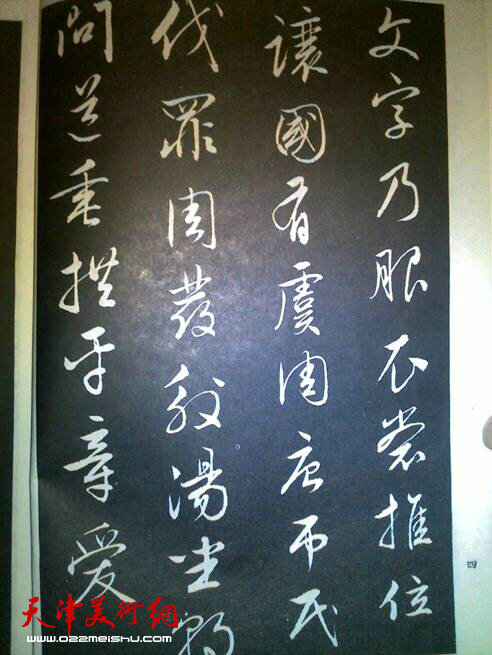 文字乃服衣裳推位
讓國有虞陶唐弔民
伐罪周發殷湯坐朝
問道垂拱平章愛
四
天津美術網
www.022meishu.com